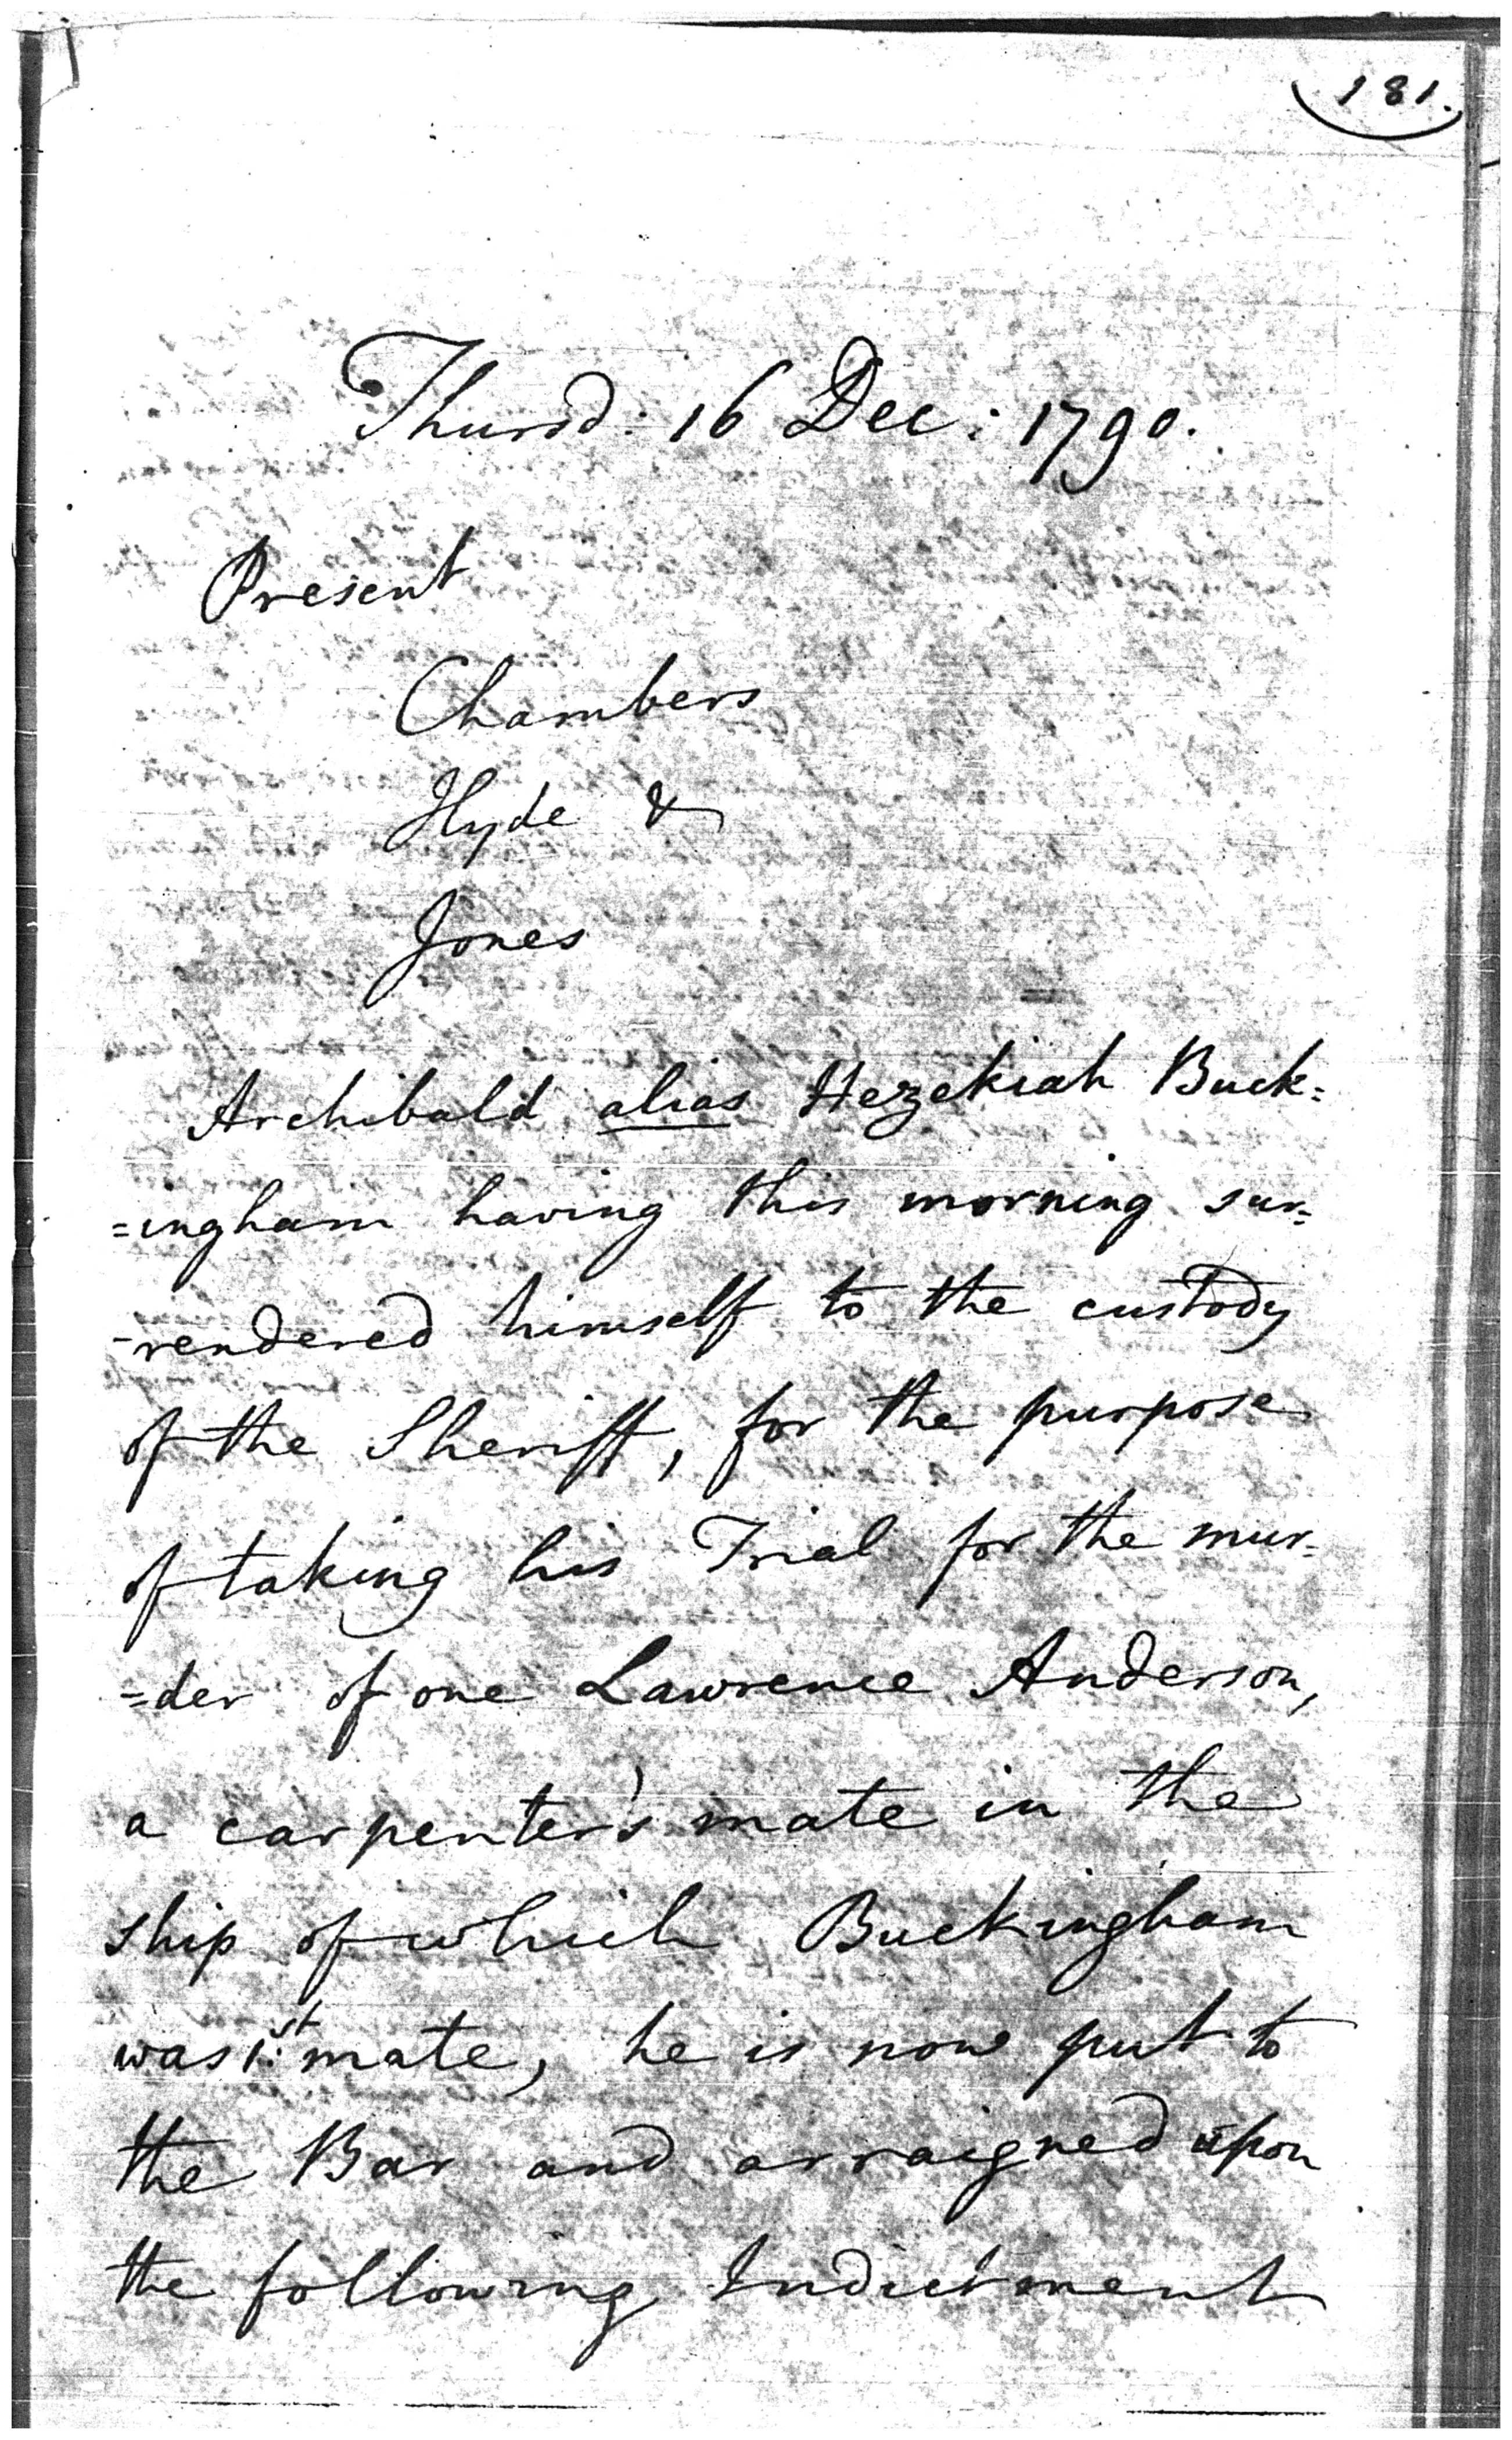 181.
Thursd: 16 Dec: 1790.
Present
Chambers
Hyde &
Jones
Archibald alias Hezekiah Buck=
=ingham having this morning sur=
-rendered himself to the custody
of the Sheriff, for the purpose
of taking his Trial for the mur=
=der of one Lawrence Anderson,
a carpenter's mate in the
ship of which Buckingham
was 1st mate, he is now put to
the Bar and arraigned upon
the following Indictment